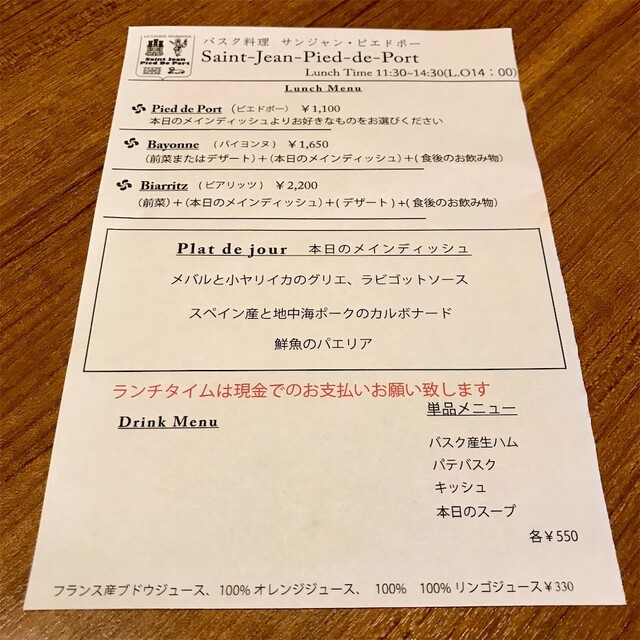 バスク料理 サンジャン・ピエドポー
Saint-Jean-Pied-de-Port
Saint Jean
Pied De Port
Lunch Time 11:30~14:30(L.O14：00)
Lunch Menu
Pied de Port (ピエドポー) ￥1,100
本日のメインディッシュよりお好きなものをお選びください
Bayonne (バイヨンヌ) ￥1,650
(前菜またはデザート)＋(本日のメインディッシュ)＋(食後のお飲み物)
Biarritz (ビアリッツ) ￥2,200
(前菜)＋(本日のメインディッシュ)＋(デザート)＋(食後のお飲み物)
Plat de jour 本日のメインディッシュ
メバルと小ヤリイカのグリエ、ラビゴットソース
スペイン産と地中海ポークのカルボナード
鮮魚のパエリア
ランチタイムは現金でのお支払いお願い致します
単品メニュー
Drink Menu
バスク産生ハム
パテバスク
キッシュ
本日のスープ
各￥550
フランス産ブドウジュース、100%オレンジジュース、 100% 100%リンゴジュース￥330